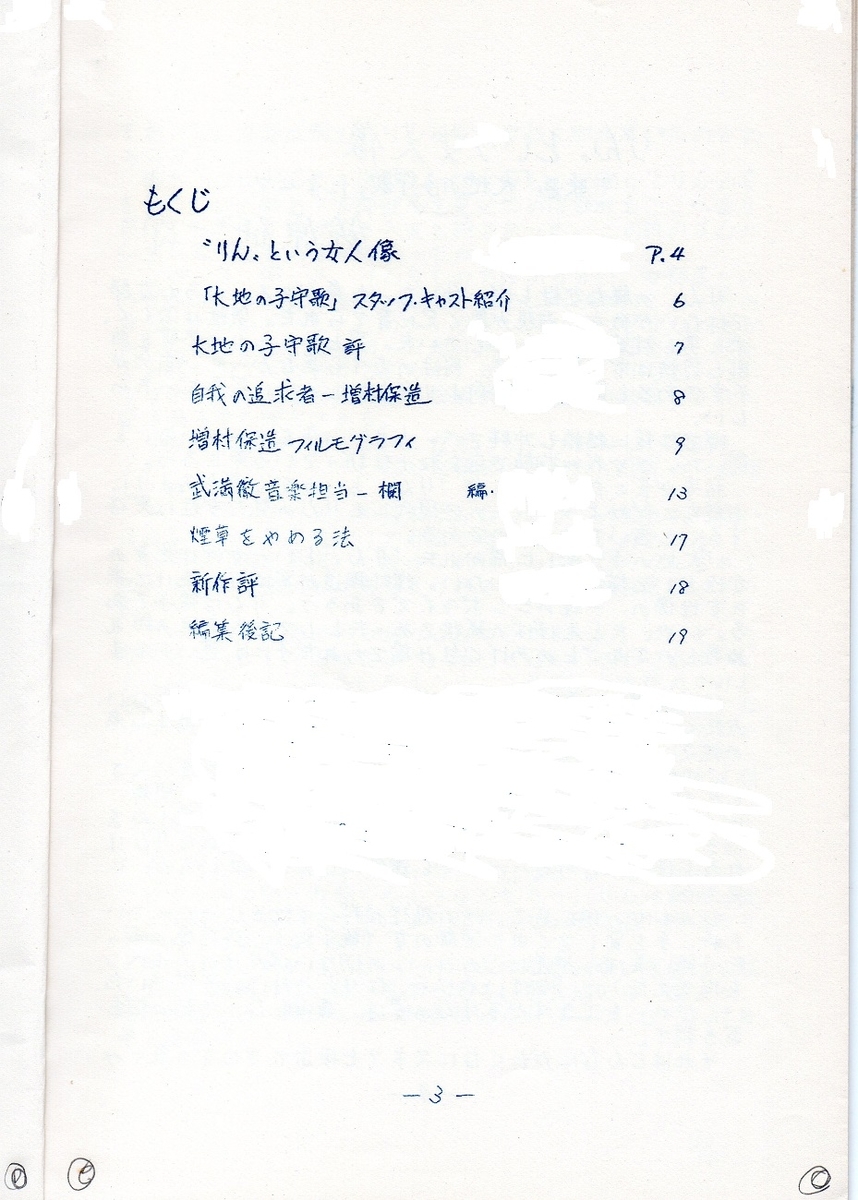 もくじ
〝りん〟という女人像 P.4
「大地の子守歌」スタッフ・キャスト紹介 6
大地の子守歌 評 7
自我の追求者ー増村保造 8
増村保造 フィルモグラフィ 9
武満徹音楽担当一欄 編. 13
煙草をやめる法 17
新作評 18
編集後記 19
ー3ー